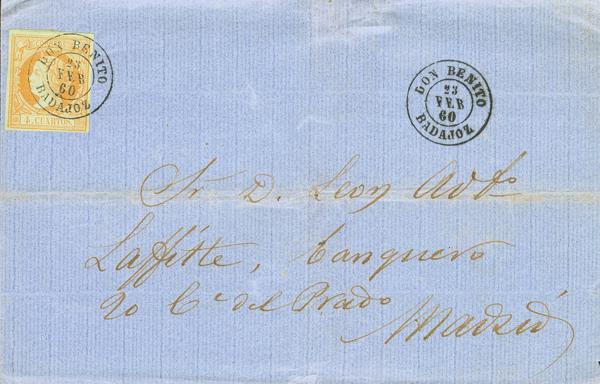 DON BENITO
23
FEB
60
BADAJOZ
4 CUARTOS
DON BENITO
23
FEB
60
BADAJOZ
Sr. D. Leon Adfo
Laffitte, banquero
20 C.ª del Prado
Madrid